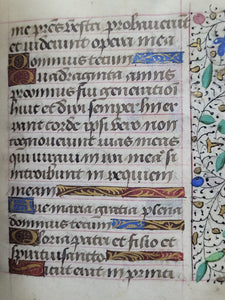 me patres vestri probaverūt
et viderunt opera mea
Dominus tecum
Quadraginta annis
proximus fui generatiōi
huic et dixi semper hii er
rant corde ipsi vero non
cognoverunt vias meas
quibus iuravi in ira mea si
introibunt in requiem
meam
Ave maria gratia plena
dominus tecum
Gloria patri et filio et
spiritui sancto
Sicut erat in princi